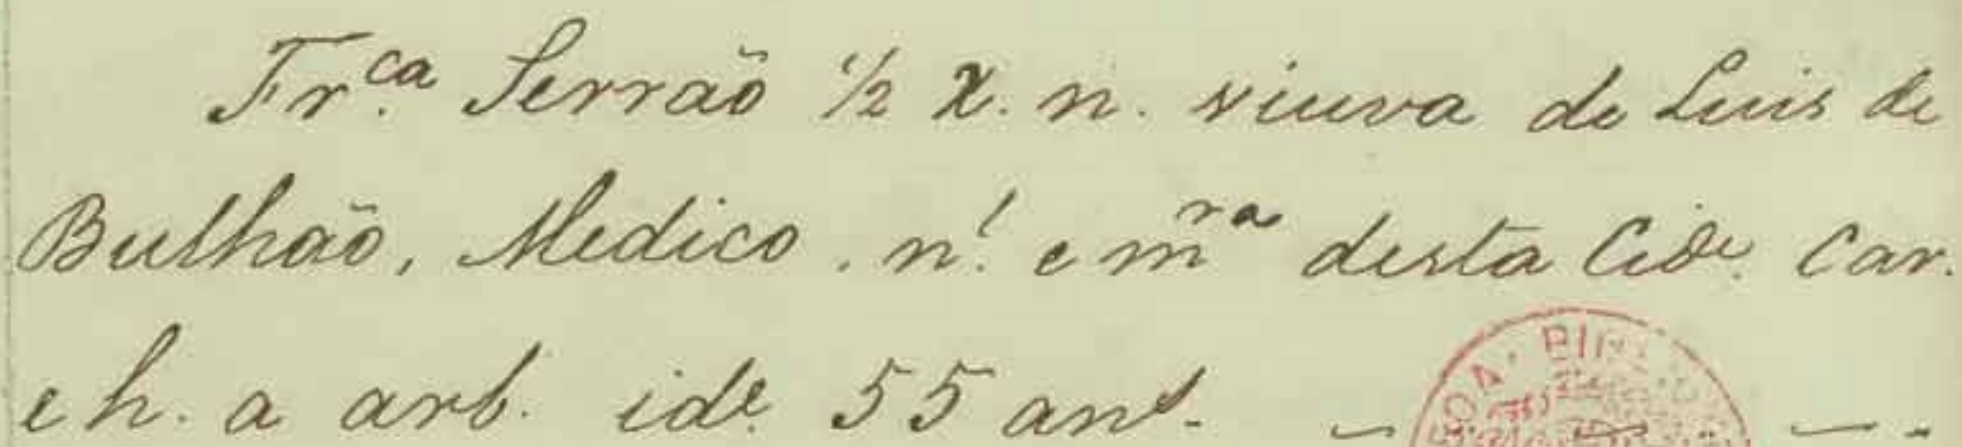 Fr.ca Serrão ½ X. n. viuva de Luis de
Bulhão, Medico. n.l e mra desta Cide. Car.
e h. a arb. ide. 55 ans. –